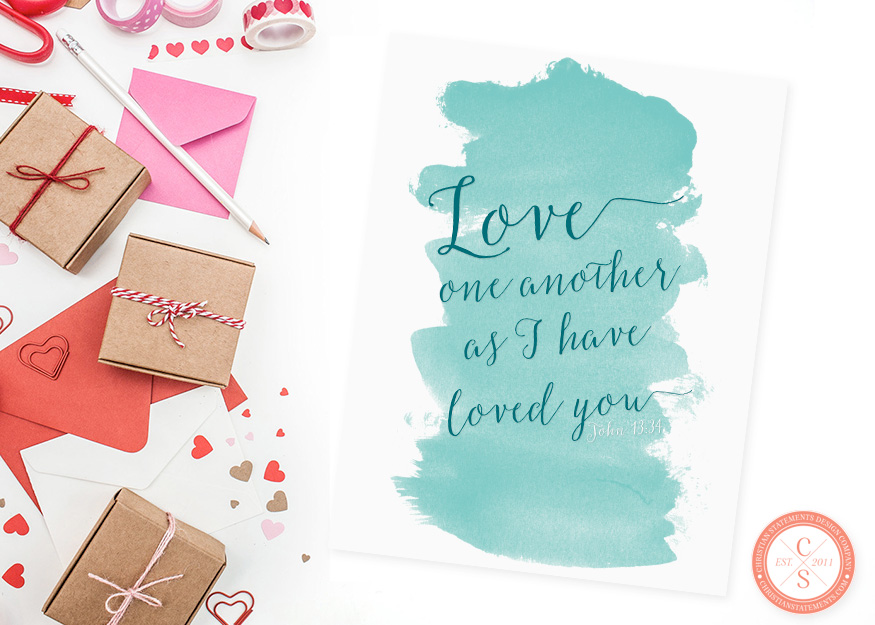 Love
one another
as I have
loved you
John 13:34
CHRISTIAN STATEMENTS DESIGN COMPANY
C
EST. 2011
S
CHRISTIANSTATEMENTS.COM